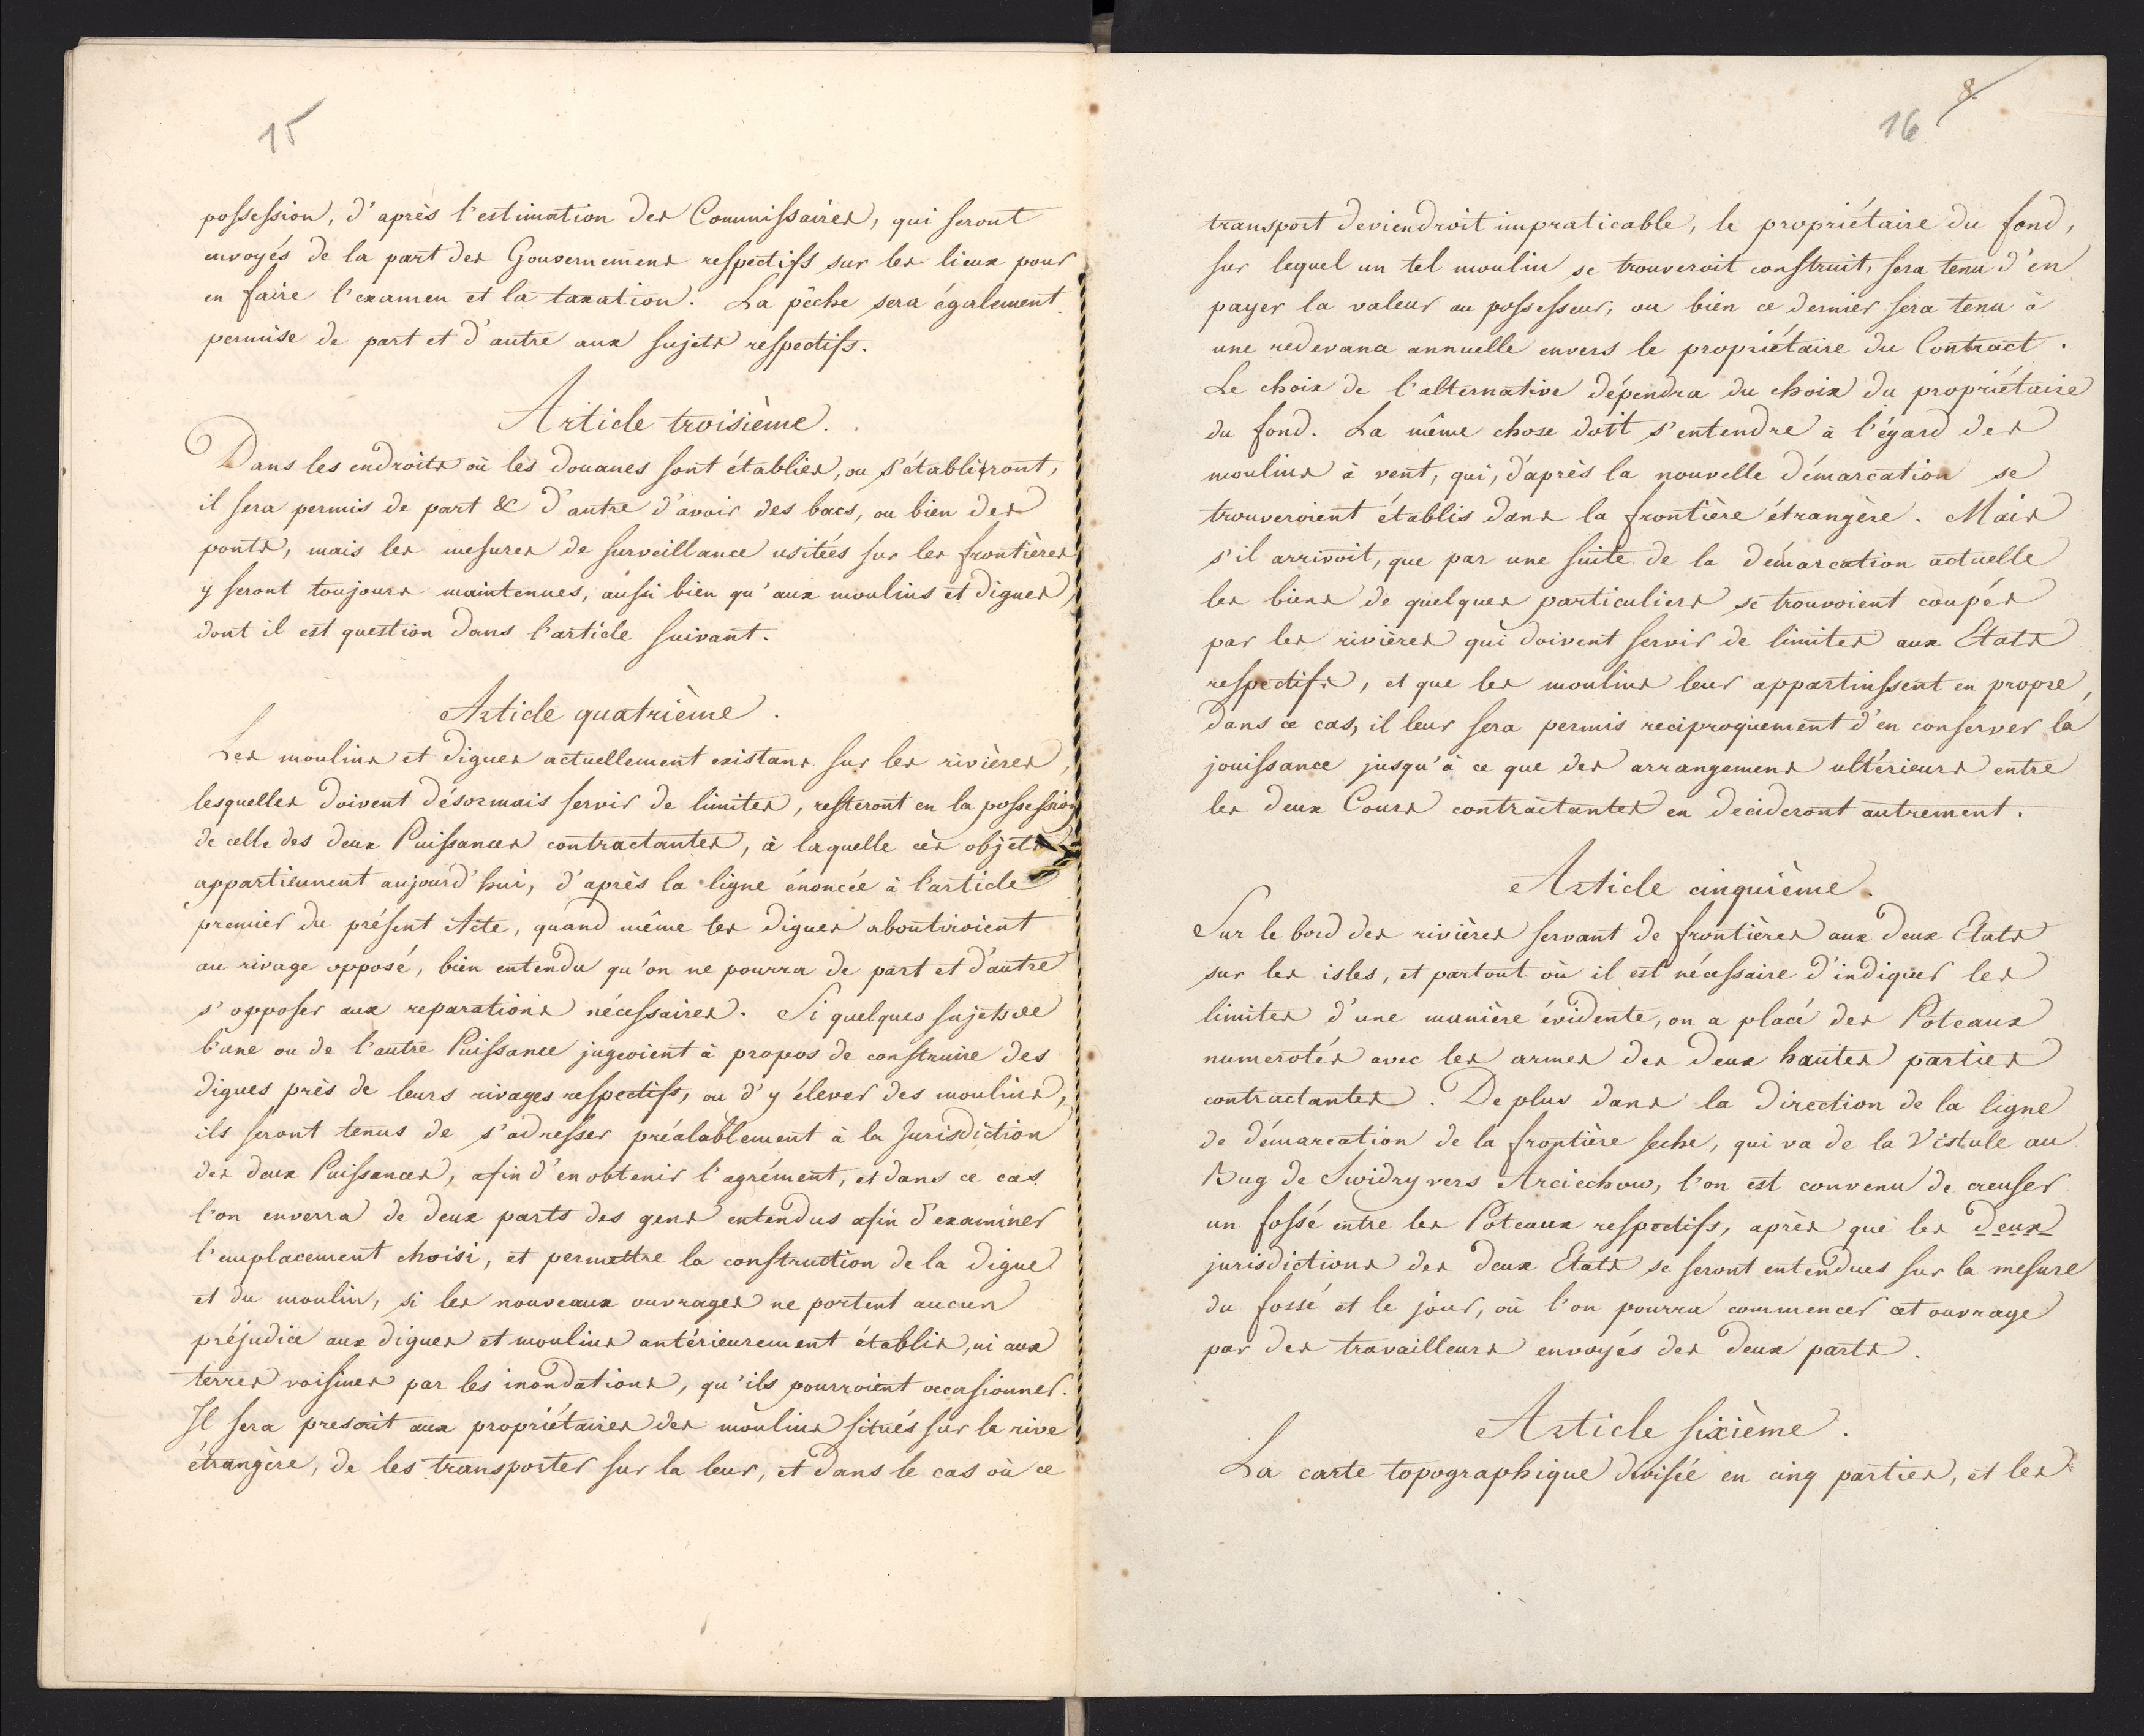 15
possession, d'après l'estimation des Commissaires, qui seront
envoyés de la part des Gouvernemens respectifs sur les lieux pour
en faire l'examen et la taxation. La pêche sera également
permise de part et d'autre aux sujets respectifs.
Article troisième.
Dans les endroits où les douanes sont établies, ou s'établiront,
il sera permis de part & d'autre d'avoir des bacs, ou bien des
ponts, mais les mesures de surveillance usitées sur les frontières
y seront toujours maintenues, aussi bien qu'aux moulins et digues,
dont il est question dans l'article suivant.
Article quatrième.
Les moulins et digues actuellement existans sur les rivières,
lesquelles doivent désormais servir de limites, resteront en la possession
de celle des deux Puissances contractantes, à laquelle ces objets
appartiennent aujourd'hui, d'après la ligne énoncée à l'article
premier du présent Acte, quand même les digues aboutiroient
au rivage opposé, bien entendu qu'on ne pourra de part et d'autre
s'opposer aux reparations nécessaires. Si quelques sujets de
l'une ou de l'autre Puissance jugeoient à propos de construire des
digues près de leurs rivages respectifs, ou d'y élever des moulins,
ils seront tenus de s'adresser préalablement à la Jurisdiction
des deux Puissances, afin d'en obtenir l'agrément, et dans ce cas
l'on enverra de deux parts des gens entendus afin d'examiner
l'emplacement choisi, et permettre la construction de la digue
et du moulin, si les nouveaux ouvrages ne portent aucun
préjudice aux digues et moulins antérieurement établis, ni aux
terres voisines par les inondations, qu'ils pourroient occasionner.
Il sera prescrit aux propriétaires des moulins situés sur la rive
étrangère, de les transporter sur la leur, et dans le cas où ce
8.
16
transport deviendroit impraticable, le propriétaire du fond,
sur lequel un tel moulin se trouveroit construit, sera tenu d'en
payer la valeur au possesseur, ou bien ce dernier sera tenu à
une redevance annuelle envers le propriétaire du Contract.
Le choix de l'alternative dépendra du choix du propriétaire
du fond. La même chose doit s'entendre à l'égard des
moulins à vent, qui, d'après la nouvelle démarcation se
trouveroient établis dans la frontière étrangère. Mais
s'il arrivoit, que par une suite de la démarcation actuelle
les biens de quelques particuliers se trouvoient coupés
par les rivières qui doivent servir de limites aux Etats
respectifs, et que les moulins leur appartinssent en propre,
dans ce cas, il leur sera permis reciproquement d'en conserver la
jouissance jusqu'à ce que des arrangemens ultérieurs entre
les deux Cours contractantes en decideront autrement.
Article cinquième.
Sur le bord des rivières servant de frontières aux deux Etats
sur les isles, et partout où il est nécessaire d'indiquer les
limites d'une manière évidente, on a placé des Poteaux
numerotés avec les armes des deux hautes parties
contractantes. De plus dans la direction de la ligne
de démarcation de la frontière seche, qui va de la Vistule au
Bug de Swidry vers Arciechow, l'on est convenu de creuser
un fossé entre les Poteaux respectifs, après que les deux
jurisdictions des deux Etats se seront entendues sur la mesure
du fossé et le jour, où l'on pourra commencer cet ouvrage
par des travailleurs envoyés des deux parts.
Article sixième.
La carte topographique divisée en cinq parties, et les